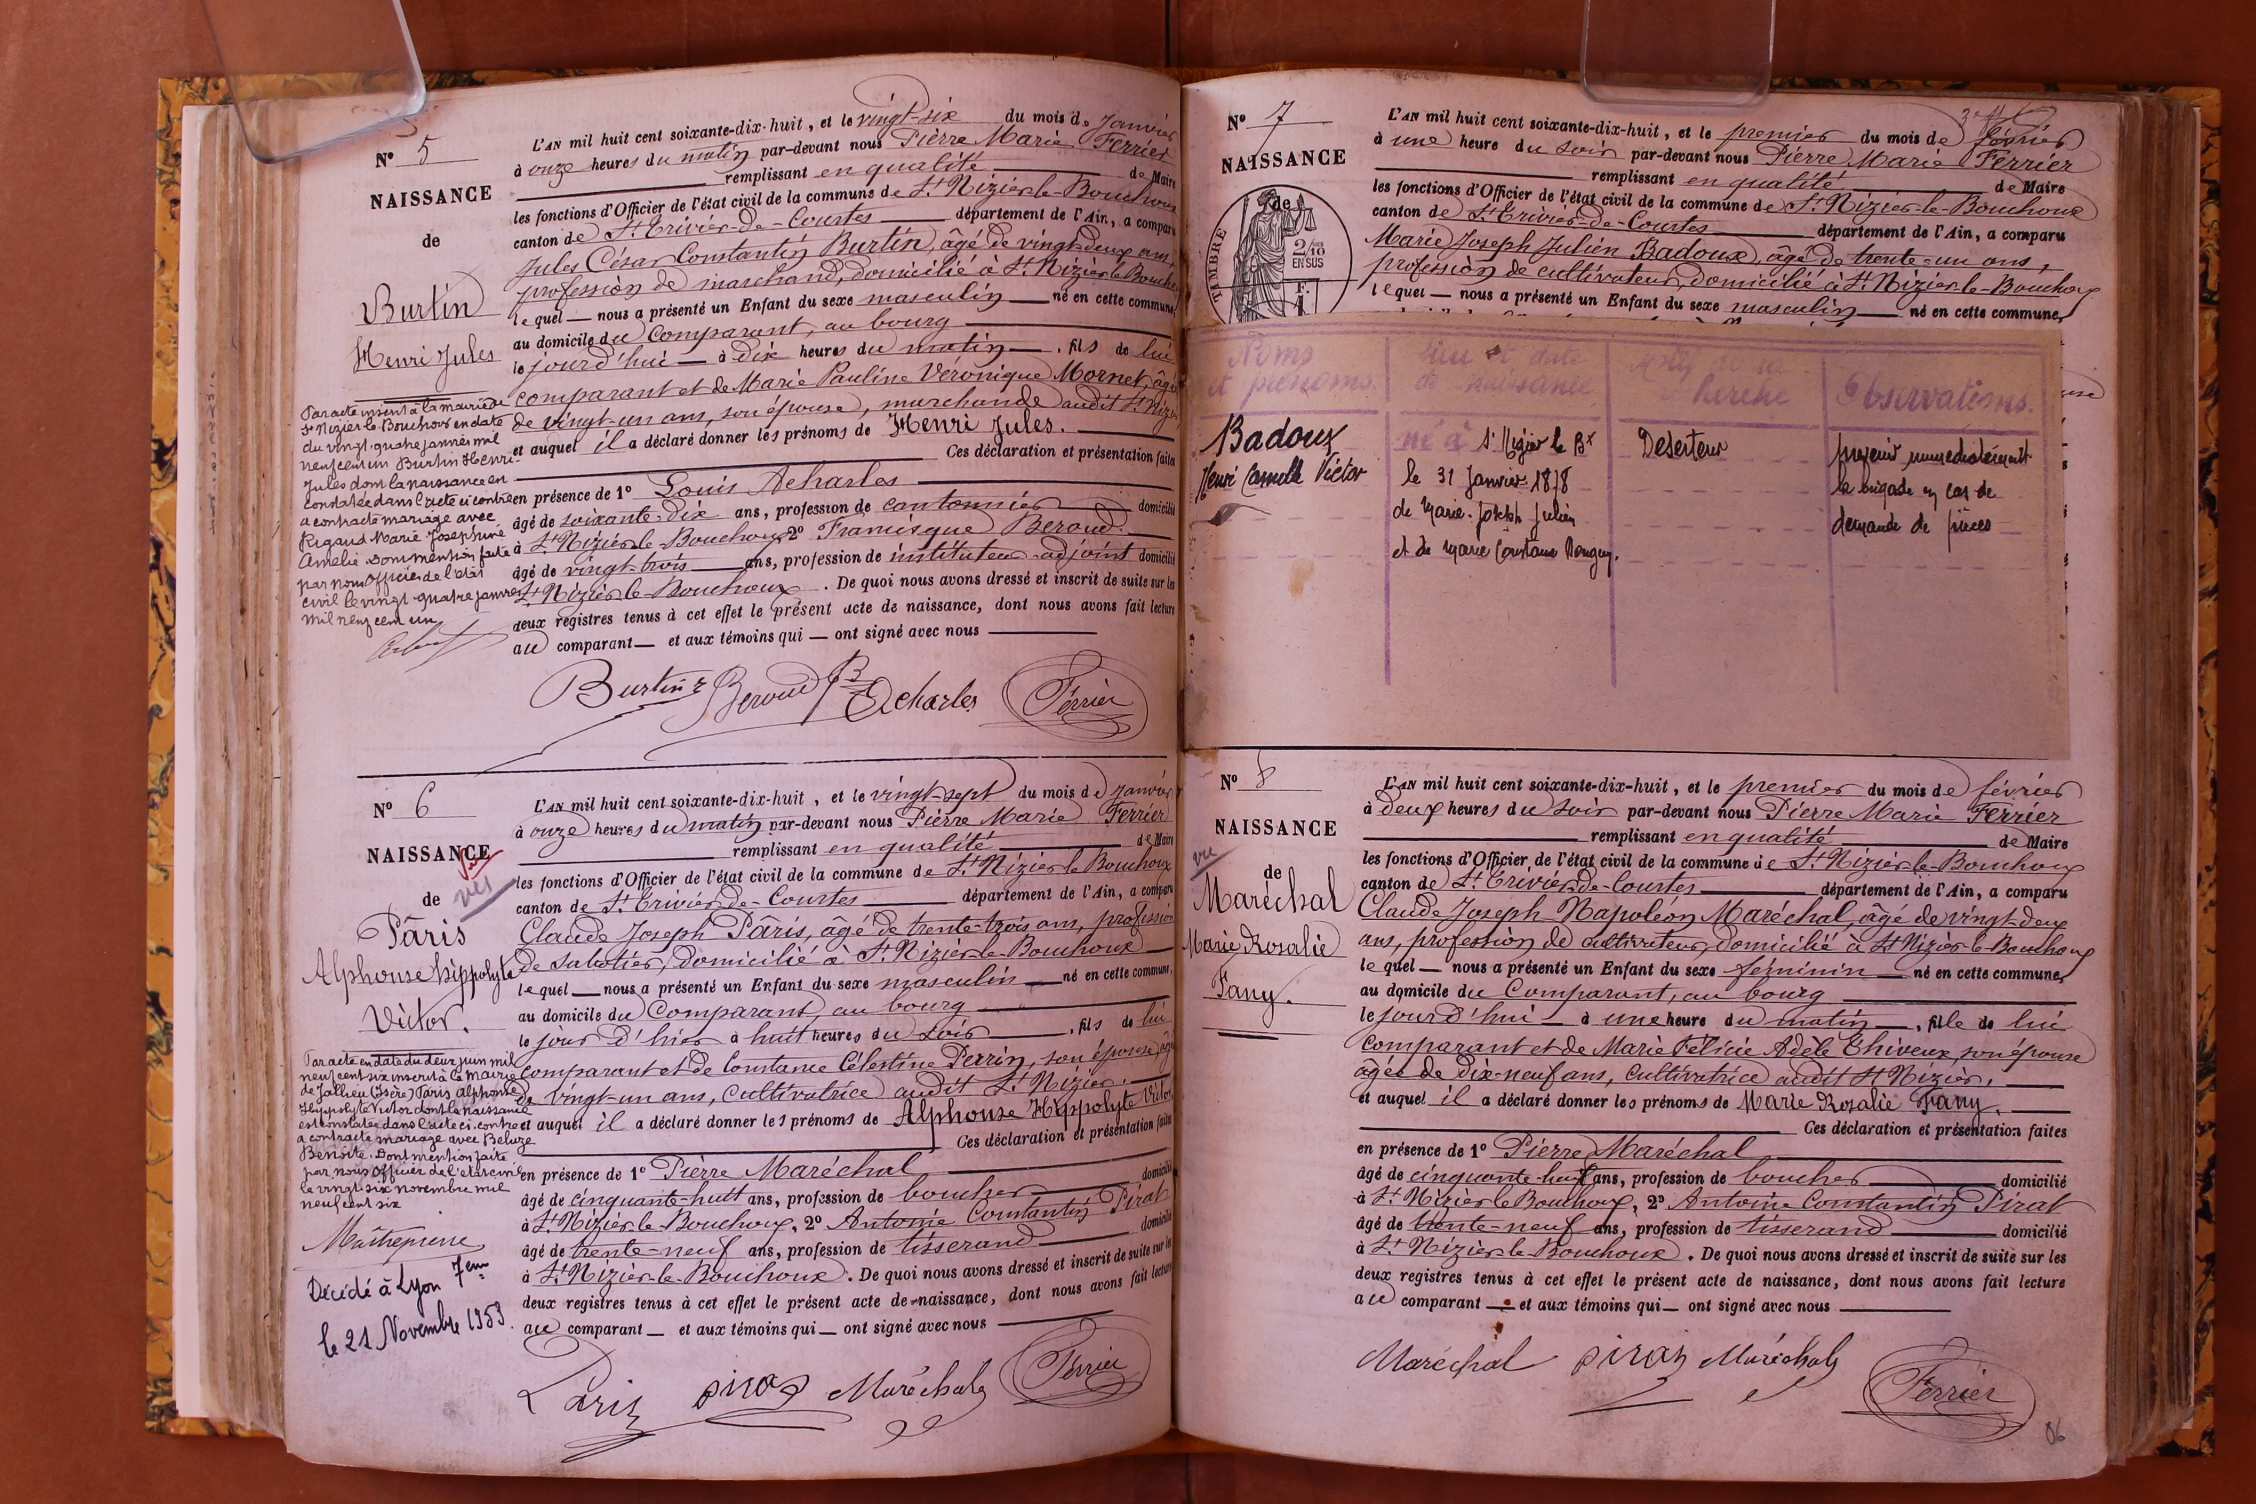 N° 5
NAISSANCE
de
Burtin
Henri Jules
Par acte inscrit à la mairie de
St Nizier-le-Bouchoux en date
du vingt-quatre janvier mil
neuf cent un Burtin Henri
Jules dont la naissance est
constatée dans l'acte ci-contre
a contracté mariage avec
Rigaud Marie Josephine
Amélie. Dont mention faite
par nous Officier de l'état
civil le vingt-quatre janvier
mil neuf cent un
L'AN mil huit cent soixante-dix-huit, et le vingt-six du mois de Janvier
à onze heures du matin par-devant nous Pierre Marie Ferrier
remplissant en qualité de Maire
les fonctions d'Officier de l'état civil de la commune de St Nizier-le-Bouchoux
canton de St Trivier-de-Courtes département de l'Ain, a comparu
Jules César Constantin Burtin, âgé de vingt-deux ans,
profession de marchand, domicilié à St Nizier-le-Bouchoux
lequel nous a présenté un Enfant du sexe masculin né en cette commune,
au domicile du comparant, au bourg
le jourd'hui à dix heures du matin, fils de lui
comparant et de Marie Pauline Véronique Mornet, âgée
de vingt-un ans, son épouse, marchande audit St Nizier
et auquel il a déclaré donner les prénoms de Henri Jules.
Ces déclaration et présentation faites
en présence de 1° Louis Acharles
âgé de soixante-dix ans, profession de cantonnier domicilié
à St Nizier-le-Bouchoux 2° Francisque Beroud
âgé de vingt-trois ans, profession de instituteur-adjoint domicilié
St Nizier-le-Bouchoux. De quoi nous avons dressé et inscrit de suite sur les
deux registres tenus à cet effet le présent acte de naissance, dont nous avons fait lecture
au comparant et aux témoins qui ont signé avec nous
Burtin Beroud Acharles Ferrier
N° 6
NAISSANCE
vu
de
Pâris
Alphonse Hippolyte
Victor.
Par acte en date du deux juin mil
neuf cent six inscrit à la mairie
de Jallieu (Isère) Paris Alphonse
Hippolyte Victor dont la naissance
est constatée dans l'acte ci-contre
a contracté mariage avec Beluze
Benoite. Dont mention faite
par nous Officier de l'état civil
le vingt-six novembre mil
neuf cent six
Maîtrepierre
Décédé à Lyon 7em
le 21 Novembre 1953.
L'AN mil huit cent soixante-dix-huit, et le vingt-sept du mois de Janvier
à onze heures du matin par-devant nous Pierre Marie Ferrier
remplissant en qualité de Maire
les fonctions d'Officier de l'état civil de la commune de St Nizier-le-Bouchoux
canton de St Trivier-de-Courtes département de l'Ain, a comparu
Claude Joseph Pâris, âgé de trente-trois ans, profession
de sabotier, domicilié à St Nizier-le-Bouchoux
lequel nous a présenté un Enfant du sexe masculin né en cette commune,
au domicile du Comparant, au bourg
le jour d'hier à huit heures du soir, fils de lui
comparant et de Constance Célestine Perrin, son épouse, âgée
de vingt-un ans, cultivatrice audit St Nizier.
et auquel il a déclaré donner les prénoms de Alphonse Hippolyte Victor
Ces déclaration et présentation faites
en présence de 1° Pierre Maréchal
âgé de cinquante-huit ans, profession de boucher domicilié
à St Nizier-le-Bouchoux, 2° Antoine Constantin Pirat
âgé de trente-neuf ans, profession de tisserand domicilié
à St Nizier-le-Bouchoux. De quoi nous avons dressé et inscrit de suite sur les
deux registres tenus à cet effet le présent acte de naissance, dont nous avons fait lecture
au comparant et aux témoins qui ont signé avec nous
Paris Pirat Maréchal Ferrier
N° 7
NAISSANCE
de
TIMBRE
2/10
EN SUS
L'AN mil huit cent soixante-dix-huit, et le premier du mois de février
à une heure du soir par-devant nous Pierre Marie Ferrier
remplissant en qualité de Maire
les fonctions d'Officier de l'état civil de la commune de St Nizier-le-Bouchoux
canton de St Trivier-de-Courtes département de l'Ain, a comparu
Marie Joseph Julien Badoux, âgé de trente-un ans,
profession de cultivateur, domicilié à St Nizier-le-Bouchoux
lequel nous a présenté un Enfant du sexe masculin né en cette commune,
Noms et prénoms
lieu et date de naissance
Observations.
Badoux
Henri Camille Victor
né à St Nizier le Bx
le 31 Janvier 1878
de Marie-Joseph Julien
et de Marie Constance
Deserteur
prévenir immédiatement
la brigade en cas de
demande de pièces
N° 8
NAISSANCE
vu
de
Maréchal
Marie Rosalie
Fany.
L'AN mil huit cent soixante-dix-huit, et le premier du mois de février
à deux heures du soir par-devant nous Pierre Marie Ferrier
remplissant en qualité de Maire
les fonctions d'Officier de l'état civil de la commune de St Nizier-le-Bouchoux
canton de St Trivier-de-Courtes département de l'Ain, a comparu
Claude Joseph Napoléon Maréchal, âgé de vingt-deux
ans, profession de cultivateur, domicilié à St Nizier-le-Bouchoux
lequel nous a présenté un Enfant du sexe féminin né en cette commune,
au domicile du Comparant, au bourg
le jourd'hui à une heure du matin, fille de lui
comparant et de Marie Félicie Adèle Thiveux, son épouse
âgée de dix-neuf ans, cultivatrice audit St Nizier.
et auquel il a déclaré donner les prénoms de Marie Rosalie Fany.
Ces déclaration et présentation faites
en présence de 1° Pierre Maréchal
âgé de cinquante-huit ans, profession de boucher domicilié
à St Nizier-le-Bouchoux, 2° Antoine Constantin Pirat
âgé de trente-neuf ans, profession de tisserand domicilié
à St Nizier-le-Bouchoux. De quoi nous avons dressé et inscrit de suite sur les
deux registres tenus à cet effet le présent acte de naissance, dont nous avons fait lecture
au comparant et aux témoins qui ont signé avec nous
Maréchal Pirat Maréchal Ferrier
06